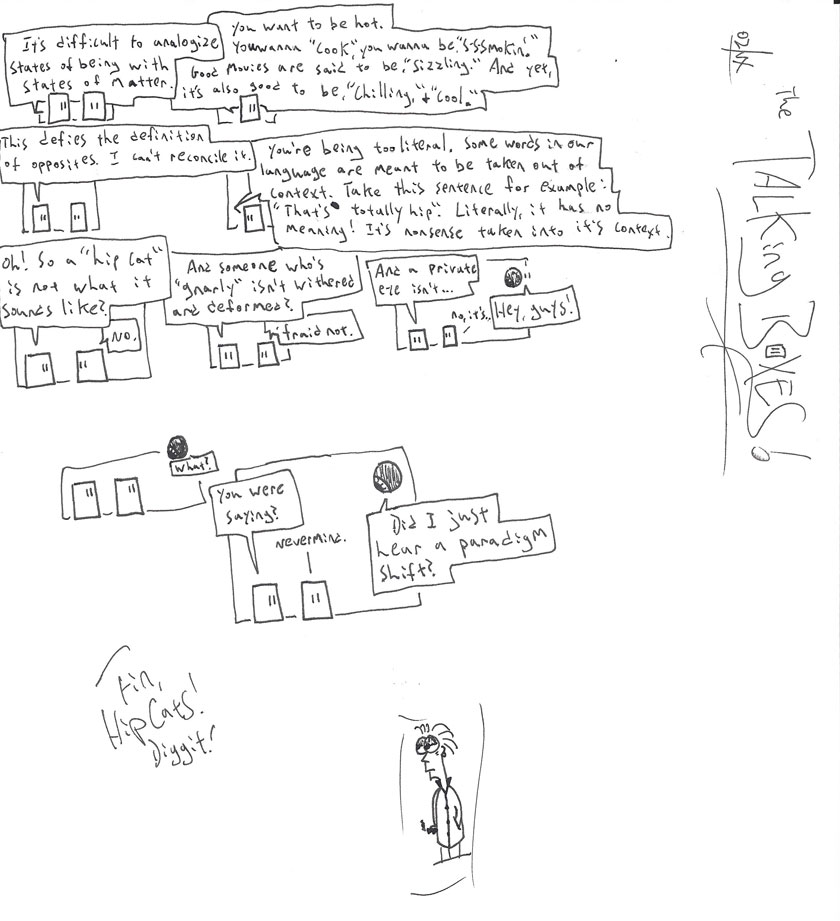 It's difficult to analogize
states of being with
states of matter.
You want to be hot.
You wanna "Cook", you wanna be, "s-s-smokin'."
Good Movies are said to be, "sizzling." And yet,
it's also good to be, "Chilling," + "Cool."
This defies the definition
of opposites. I can't reconcile it.
You're being too literal. Some words in our
language are meant to be taken out of
context. Take this sentence for example:
"That's totally hip". Literally, it has no
meaning! It's nonsense taken into it's context.
Oh! So a "hip cat"
is not what it
sounds like?
No.
And someone who's
"gnarly" isn't withered
and deformed?
'fraid not.
And a private
eye isn't...
no, it's..
Hey, guys!
What?
You were
saying?
nevermind.
Did I just
hear a paradigm
shift?
Fin,
Hip Cats!
Diggit!
The
TALKing BOXES!